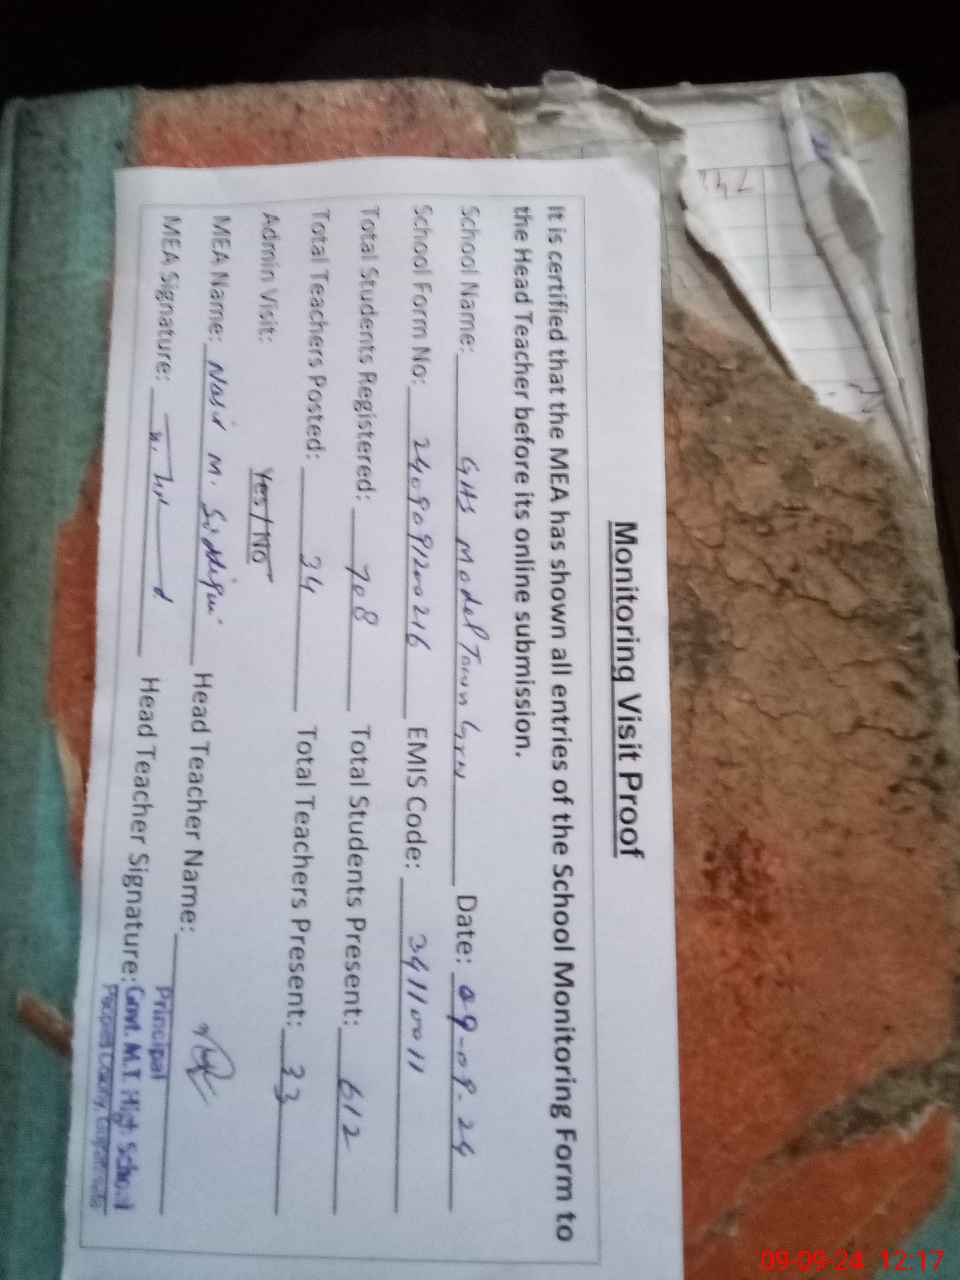 Monitoring Visit Proof
It is certified that the MEA has shown all entries of the School Monitoring Form to
the Head Teacher before its online submission.
School Name: GHS Model Town Grw Date: 09-09-24
School Form No: 2409091200216 EMIS Code: 34110011
Total Students Registered: 708 Total Students Present: 612
Total Teachers Posted: 34 Total Teachers Present: 33
Admin Visit: Yes/No
MEA Name: Nasir M. Siddiqui Head Teacher Name:
MEA Signature: Head Teacher Signature:
Principal
Govt. M.T. High School
Peoples Colony,
09-09-24 12:17